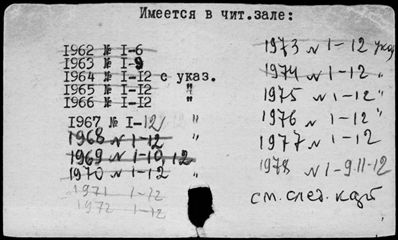 Имеется в чит.зале:
1962 № I-6
1963 № I-9
1964 № I-12 с указ.
1965 № I-12 "
1966 № I-12 "
1967 № I-12 "
1968 № 1-12 "
1969 № 1-10, 12
1970 № 1-12 "
1971 1-12
1972 1-12
1973 № 1-12 указ
1974 № 1-12 "
1975 № 1-12 "
1976 № 1-12 "
1977 № 1-12
1978 № 1-9.11-12
см. след. карт